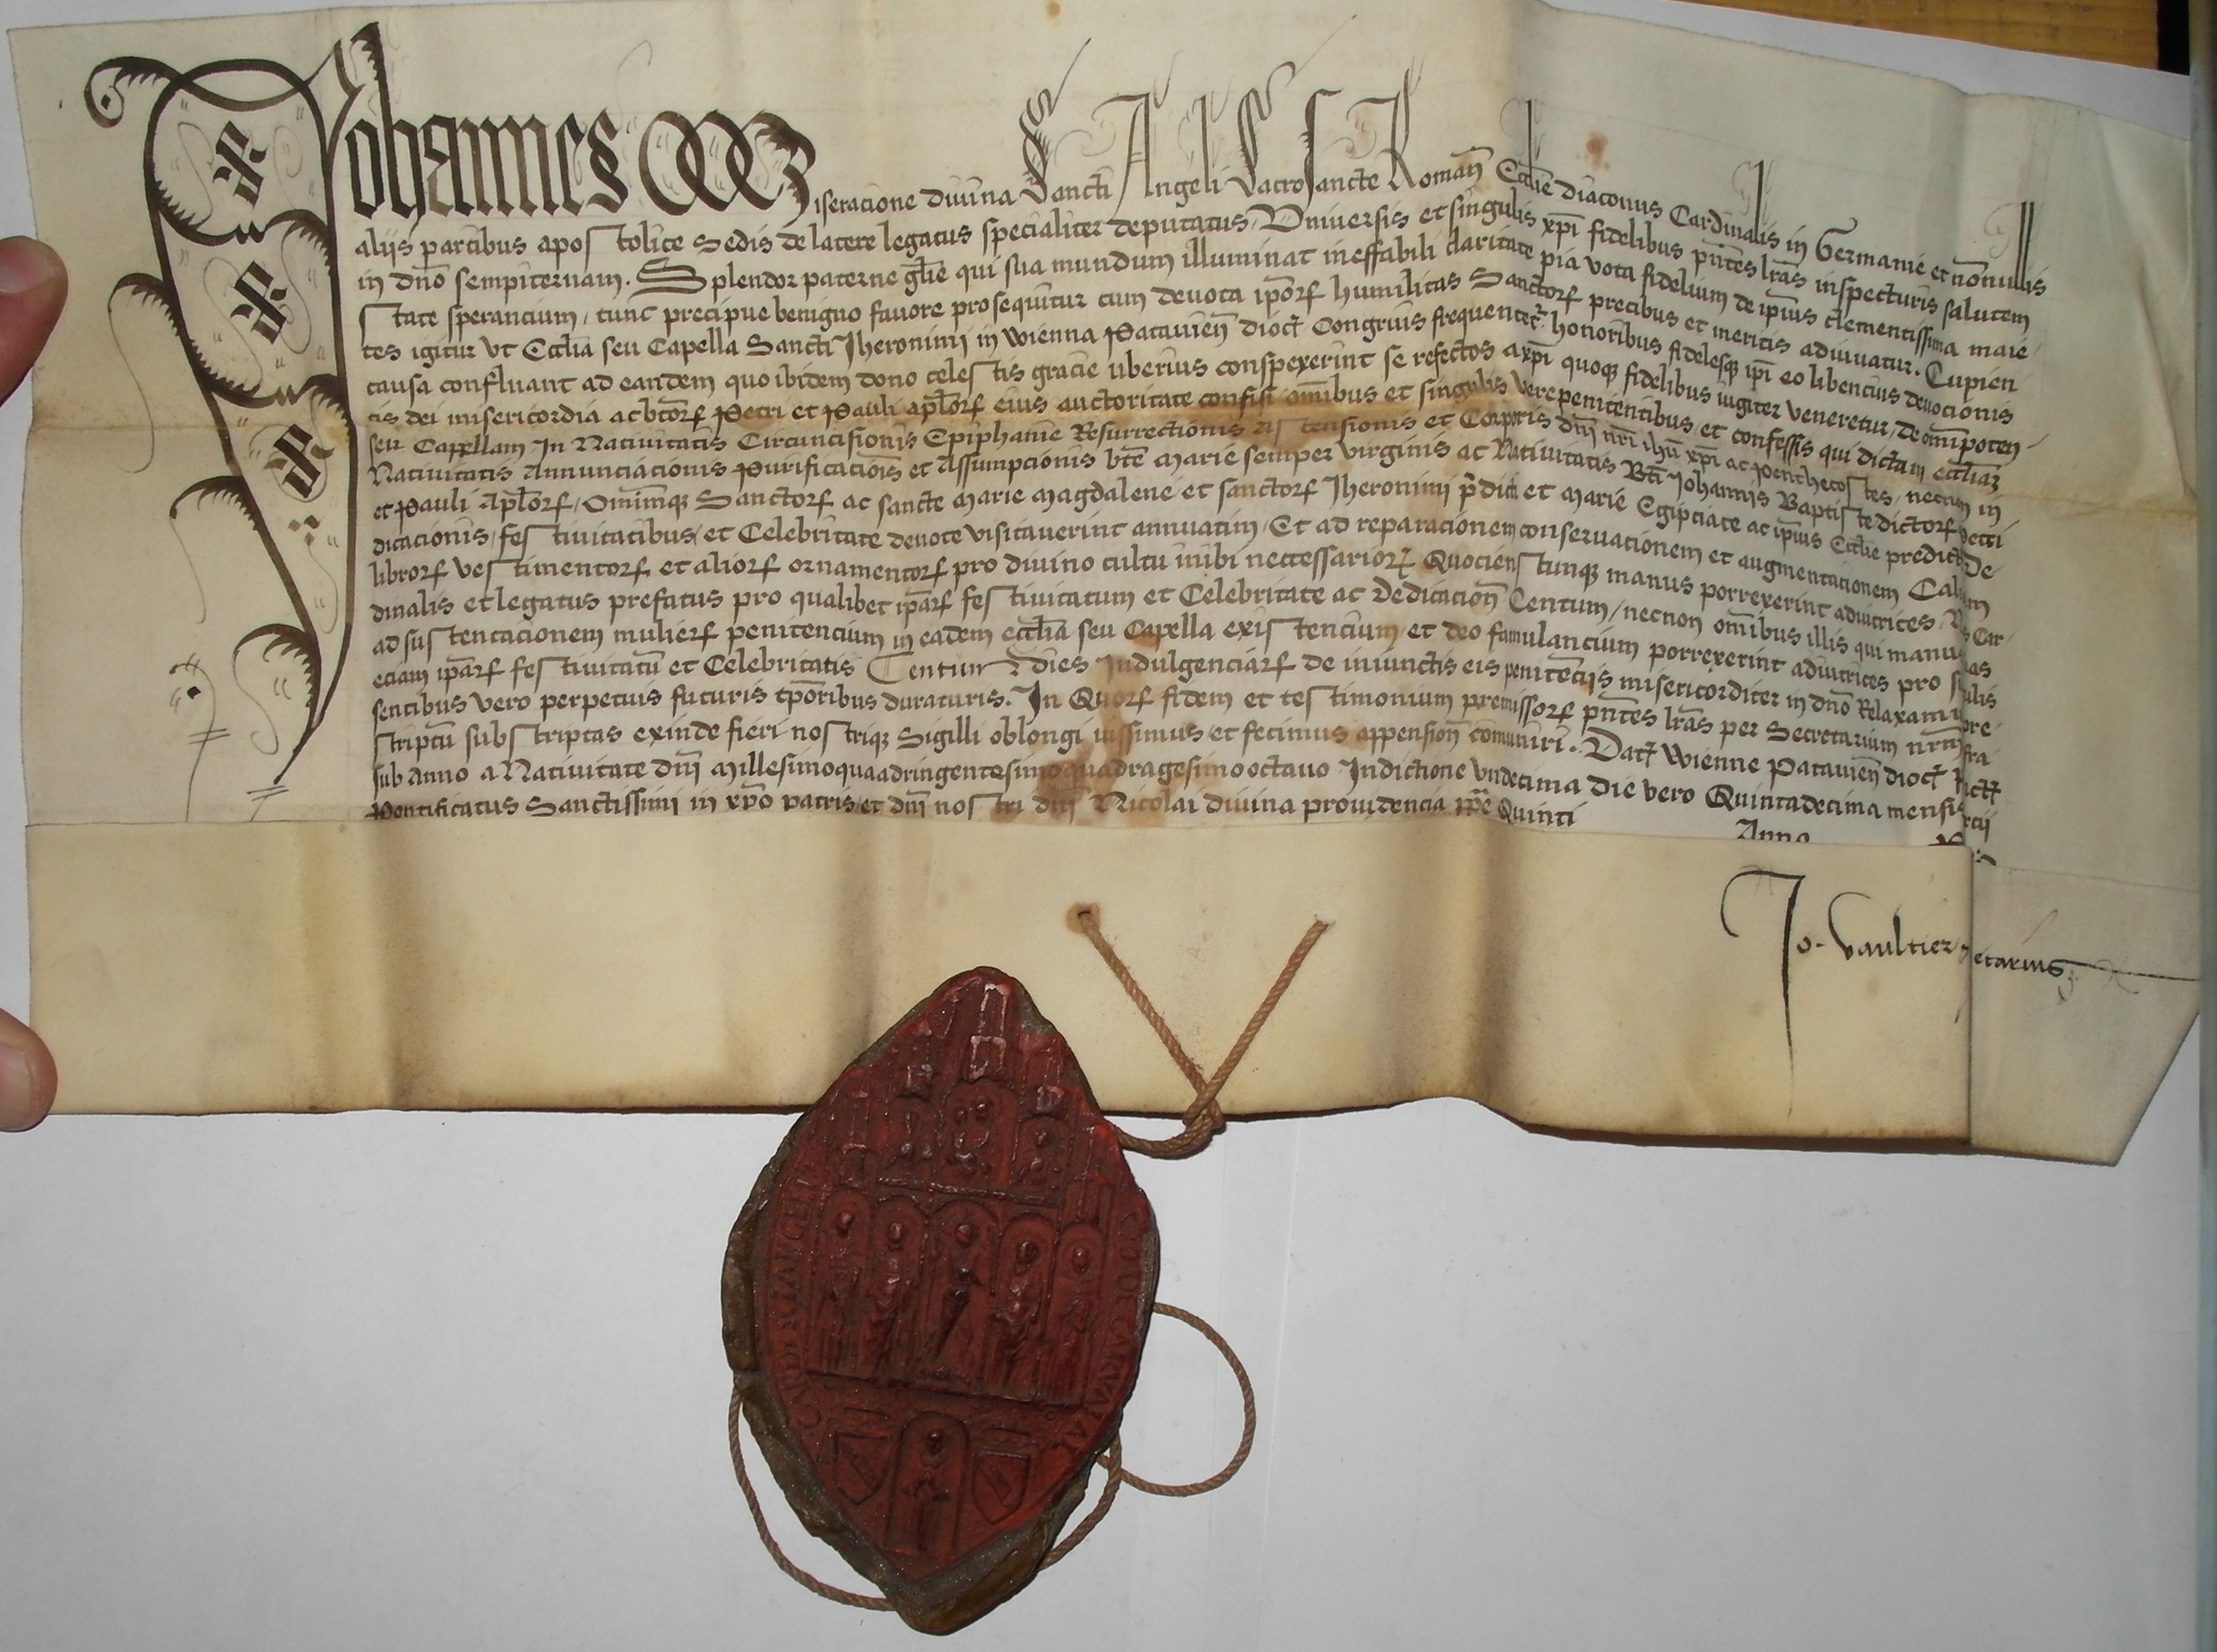 Johannes Miseracione divina Sancti Angeli Sacrosancte Roman̄ Ecclie diaconus Cardinalis in Germanie et nōnullis
aliis partibus apostolice Sedis de latere legatus specialiter deputatus Universis et singulis xp̄i fidelibus pn̄tes lrās inspecturis salutem
in dn̄o sempiternam. Splendor paterne glīe qui sua mundum illuminat ineffabili claritate pia vota fidelium de ip̄ius clementissima maie
state sperancium, tunc precipue benigno favore prosequitur cum devota ip̄oꝝ humilitas Sanctoꝝ precibus et meritis adiuvatur. Cupien
tes igitur ut Ecclīa seu Capella Sancti Jheronimi in wienna Patavien̄ dioc̄ Congruis frequentet᷑ honoribus fidelesqꝫ ip̄i eo libencius devocionis
causa confluant ad eandem quo ibidem dono celestis gracie uberius conspexerint se refectos a xp̄i quoqꝫ fidelibus iugiter veneretur, de om̄ipoten
tis dei misericordia ac btōꝝ Petri et Pauli aplōꝝ eius auctoritate confisi om̄ibus et singulis vere penitentibus et confessis qui dictam eccliaꝫ
seu Capellam In Nativitatis Circuncisionis Epiphanie Resurrectionis Ascensionis et Corporis dn̄i nrī ihū xp̄i ac Penthecostes, necnon in
Nativitatis Annunciacionis Purificacioīs et Assumpcionis btē Marie semper virginis ac Nativitatis Btī Johannis Baptiste dictoꝝ Petri
et Pauli Aplōꝝ, Om̄iumqꝫ Sanctoꝝ ac sancte Marie Magdalene et sanctoꝝ Jheronimi p̄dicti et Marie Egipciace ac ip̄ius Ecclīe predicte De
dicacionis, festivitatibus, et Celebritate devote visitaverint annuatim, Et ad reparacionem conservacionem et augmentacionem Calicum
libroꝝ vestimentoꝝ et alioꝝ ornamentoꝝ pro divino cultu inibi neccessarioꝝ Quocienscunqꝫ manus porrexerint adiutrices, Nos Car
dinalis et legatus prefatus pro qualibet ip̄aꝝ festivitatum et Celebritate ac Dedicacion̄ Centum, necnon om̄ibus illis qui manus
ad sustentacionem mulieꝝ penitencium in eadem ecclīa seu Capella existencium, et deo famulancium porrexerint adiutrices pro
eciam ip̄aꝝ festivitatū et Celebritatis Centum dies Indulgenciaꝝ de iniunctis eis penitēciis misericorditer in dn̄o Relaxamus pre
sentibus vero perpetuis futuris tp̄oribus duraturis. In Quoꝝ fidem et testimonium premissoꝝ pn̄tes lrās per Secretarium nrm̄ infra
scriptū subscriptas exinde fieri nostriqꝫ Sigilli oblongi iussimus et fecimus appension̄ cōmuniri. Dat̄ Wienne Patavien̄ dioc̄
sub anno a Nativitate dn̄i Millesimoquaadringentesimoquadragesimooctavo Indictione Undecima die vero Quintadecima mensis Marcii
Pontificatus Sanctissimi in xp̄o patris et dn̄i nostri dn̄i Nicolai divina providencia pp̄e Quinti Anno
Jo. Vaultier